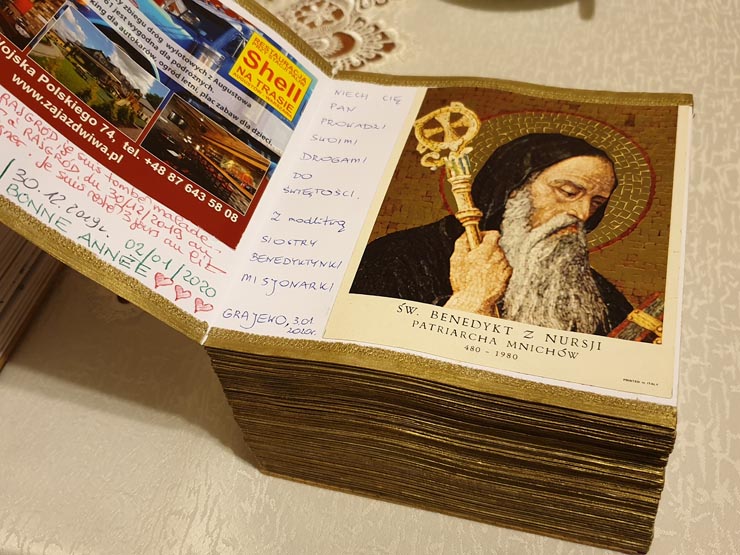 y zbiegu dróg wylotowych z Augustowa
61 jest wygodna dla podróżnych.
king dla autokarów, ogród letni, plac zabaw dla dzieci.
RESTAURACJA
Shell
NA TRASIE
Wojska Polskiego 74, tel. +48 87 643 58 08
www.zajazdwiwa.pl
RAJGRÓD je suis tombé malade
à RAJGRÓD du 30/12/2019 au
je suis resté 3 jers au lit
30.12.2019r.
02/01/2020
BONNE ANNÉE
NIECH CIĘ
PAN
PROWADZI
SWOIMI
DROGAMI
DO
ŚWIĘTOŚCI.
Z modlitwą
SIOSTRY
BENEDYKTYNKI
MISJONARKI
GRAJEWO, 3.01
2020r.
ŚW. BENEDYKT Z NURSJI
PATRIARCHA MNICHÓW
480 - 1980
PRINTED IN ITALY